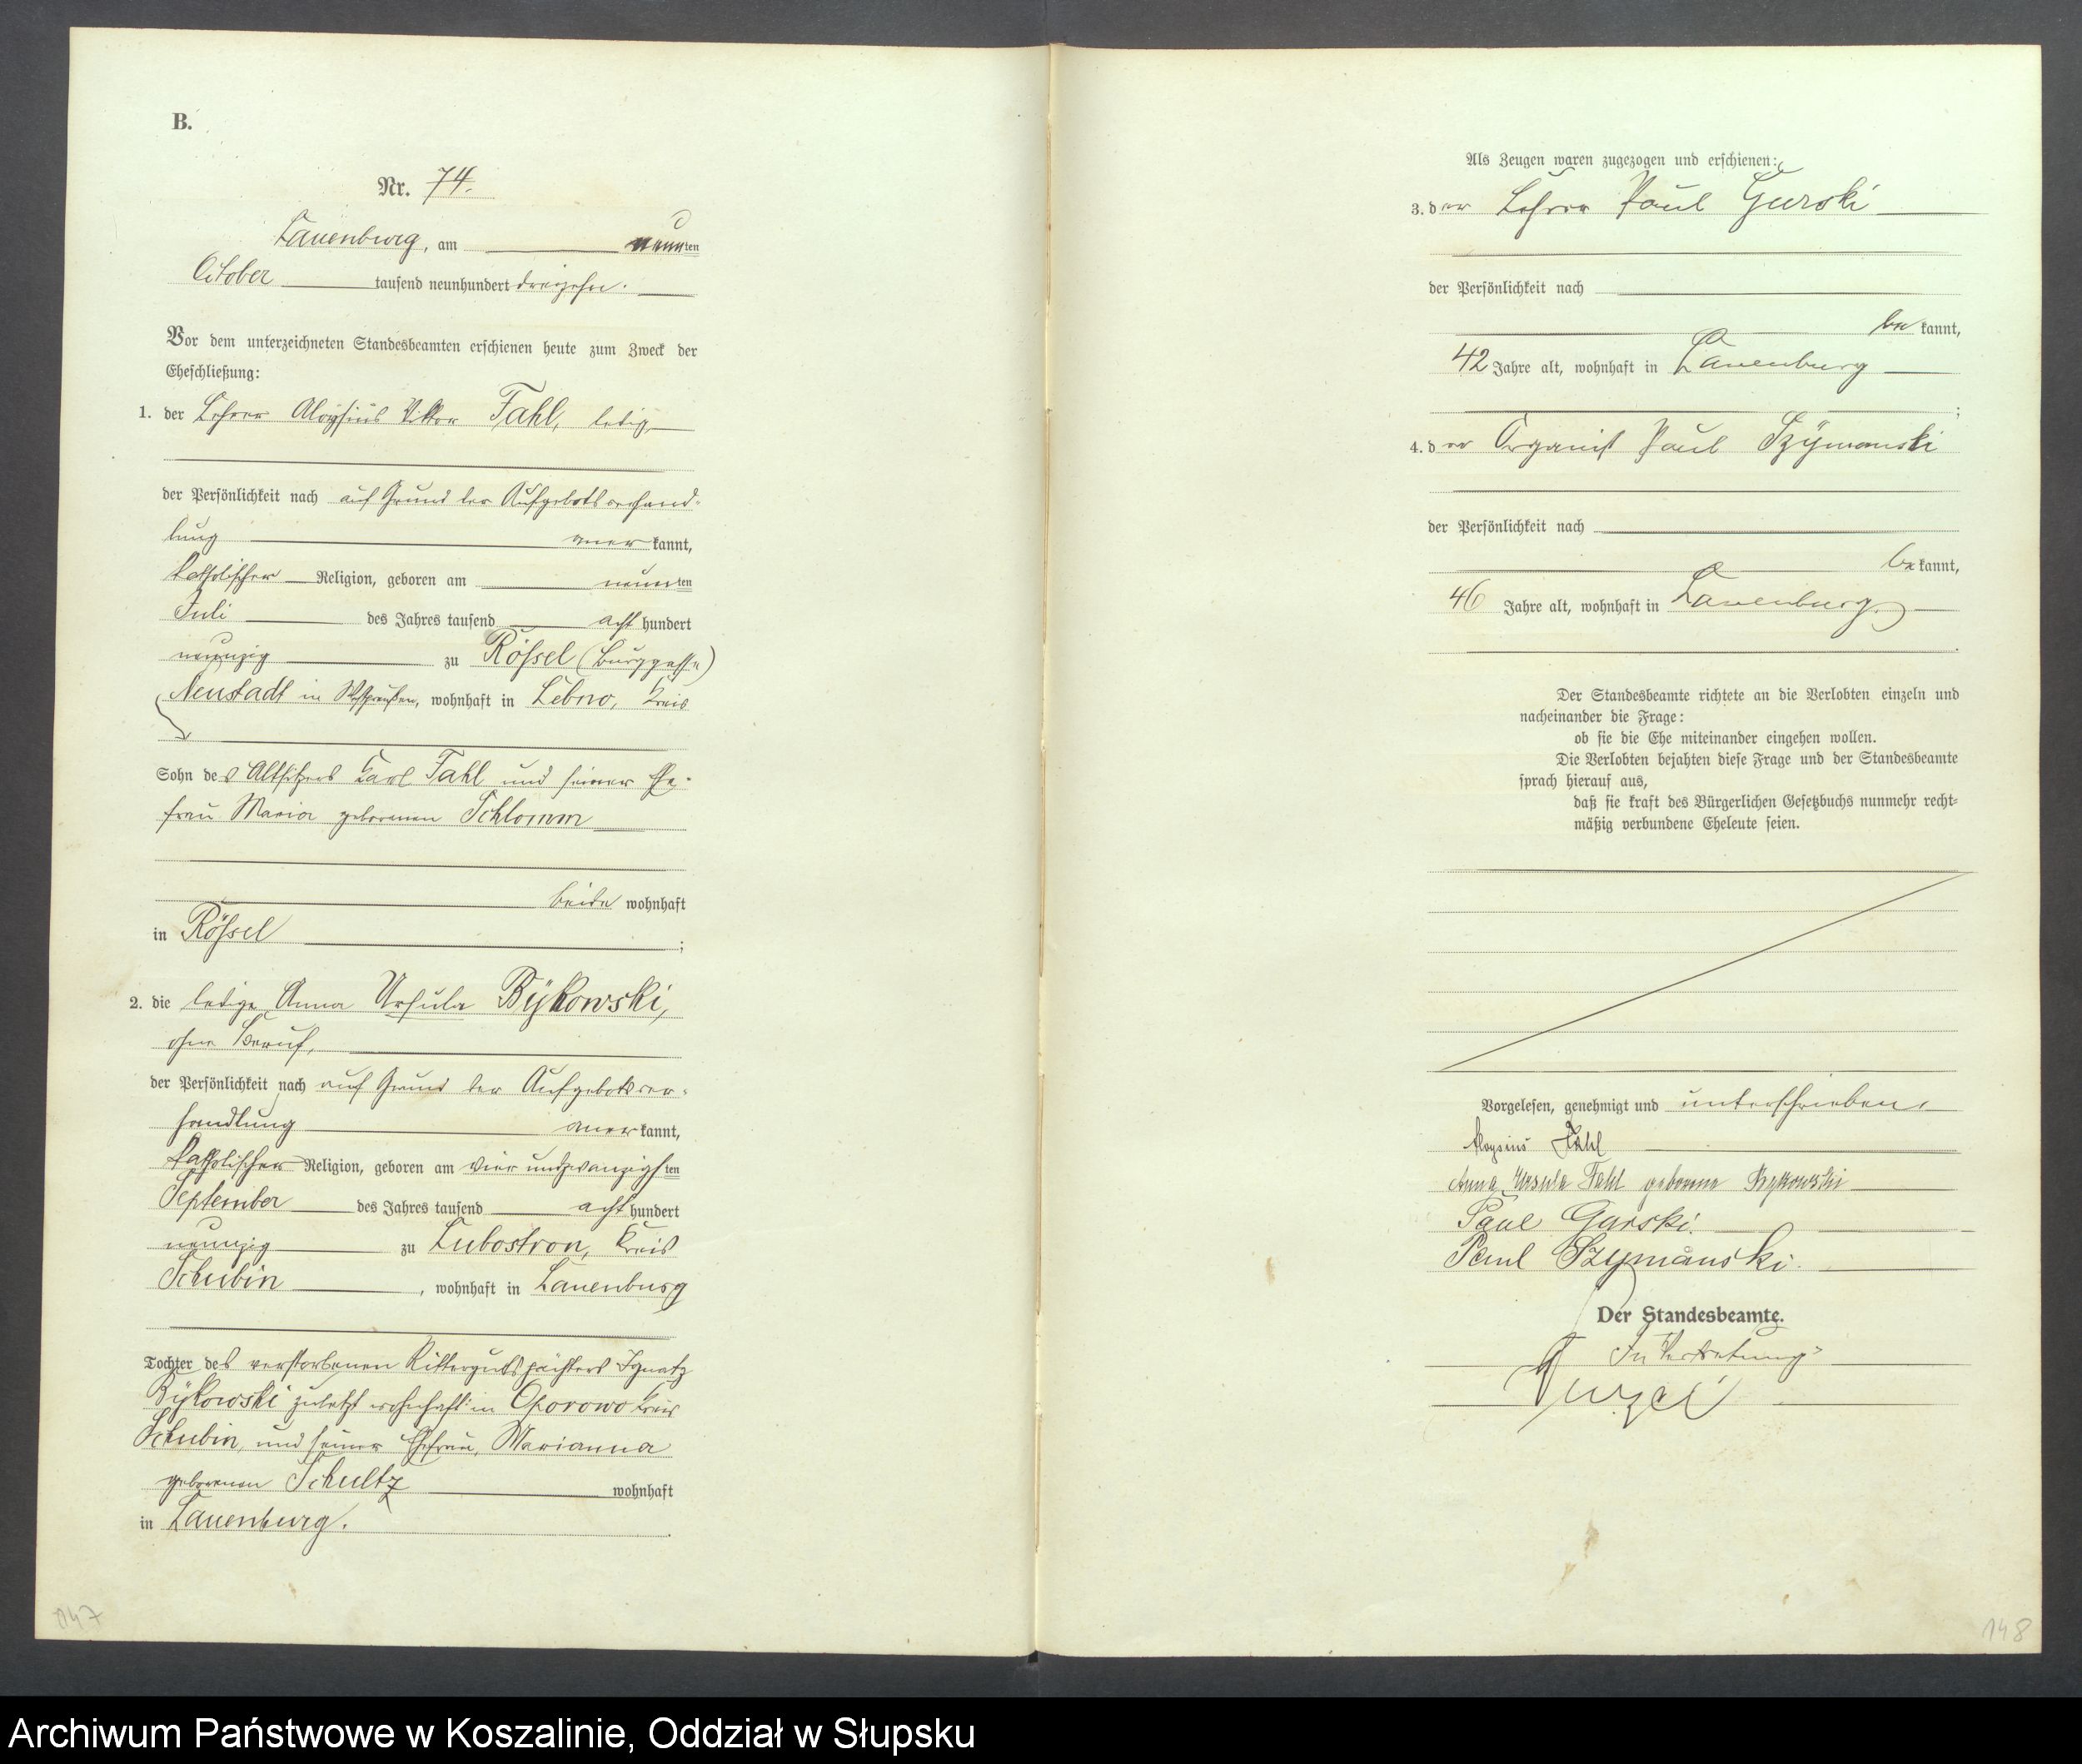 B.
Nr. 74.
Lauenburg, am neunten
October tausend neunhundert dreizehn.
Vor dem unterzeichneten Standesbeamten erschienen heute zum Zweck der
Eheschließung:
1. der Lehrer Aloysius Viktor Fahl, ledig
der Persönlichkeit nach auf Grund der Aufgebotsverhand-
lung anerkannt,
katholischer Religion, geboren am neunten
Juli des Jahres tausend acht hundert
neunzig zu Rößel (Burggasse)
Neustadt in Westpreußen, wohnhaft in Lebno, Kreis
Sohn des Altsitzers Karl Fahl und seiner Ehe-
frau Maria geborenen Schlomm
beide wohnhaft
in Rößel ;
2. die ledige Anna Ursula Bÿkowski,
ohne Beruf,
der Persönlichkeit nach auf Grund der Aufgebotsver-
handlung anerkannt,
katholischer Religion, geboren am vierundzwanzigsten
September des Jahres tausend acht hundert
neunzig zu Lubostron, Kreis
Schubin , wohnhaft in Lauenburg
Tochter des verstorbenen Rittergutspächters Ignatz
Bÿkowski zuletzt wohnhaft in Oporowo Kreis
Schubin, und seiner Ehefrau, Marianna
geborenen Schultz wohnhaft
in Lauenburg.
147
Als Zeugen waren zugezogen und erschienen:
3. der Lehrer Paul Gurski
der Persönlichkeit nach
bekannt,
42 Jahre alt, wohnhaft in Lauenburg
;
4. der Organist Paul Szÿmanski
der Persönlichkeit nach
bekannt,
46 Jahre alt, wohnhaft in Lauenburg.
Der Standesbeamte richtete an die Verlobten einzeln und
nacheinander die Frage:
ob sie die Ehe miteinander eingehen wollen.
Die Verlobten bejahten diese Frage und der Standesbeamte
sprach hierauf aus,
daß sie kraft des Bürgerlichen Gesetzbuchs nunmehr recht-
mäßig verbundene Eheleute seien.
Vorgelesen, genehmigt und unterschrieben.
Aloysius Fahl
Anna Ursula Fahl geborene Bykowski
Paul Gurski.
Paul Szymański.
Der Standesbeamte.
In Vertretung
148
Archiwum Państwowe w Koszalinie, Oddział w Słupsku